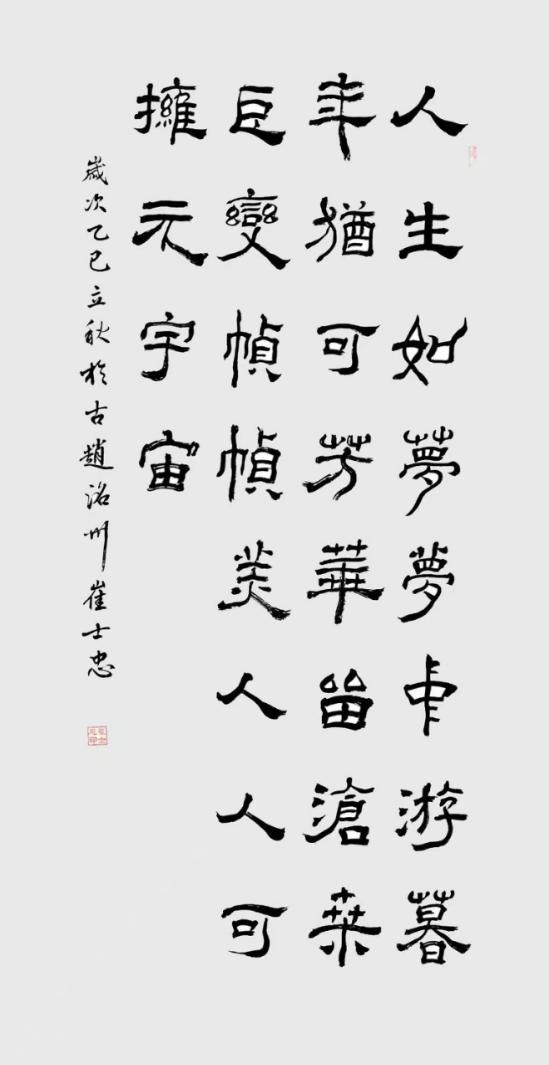 人生如夢夢中游暮
年猶可芳華留滄桑
巨變幀幀美人人可
擁元宇宙
歲次乙巳立秋於古趙洺州崔士忠